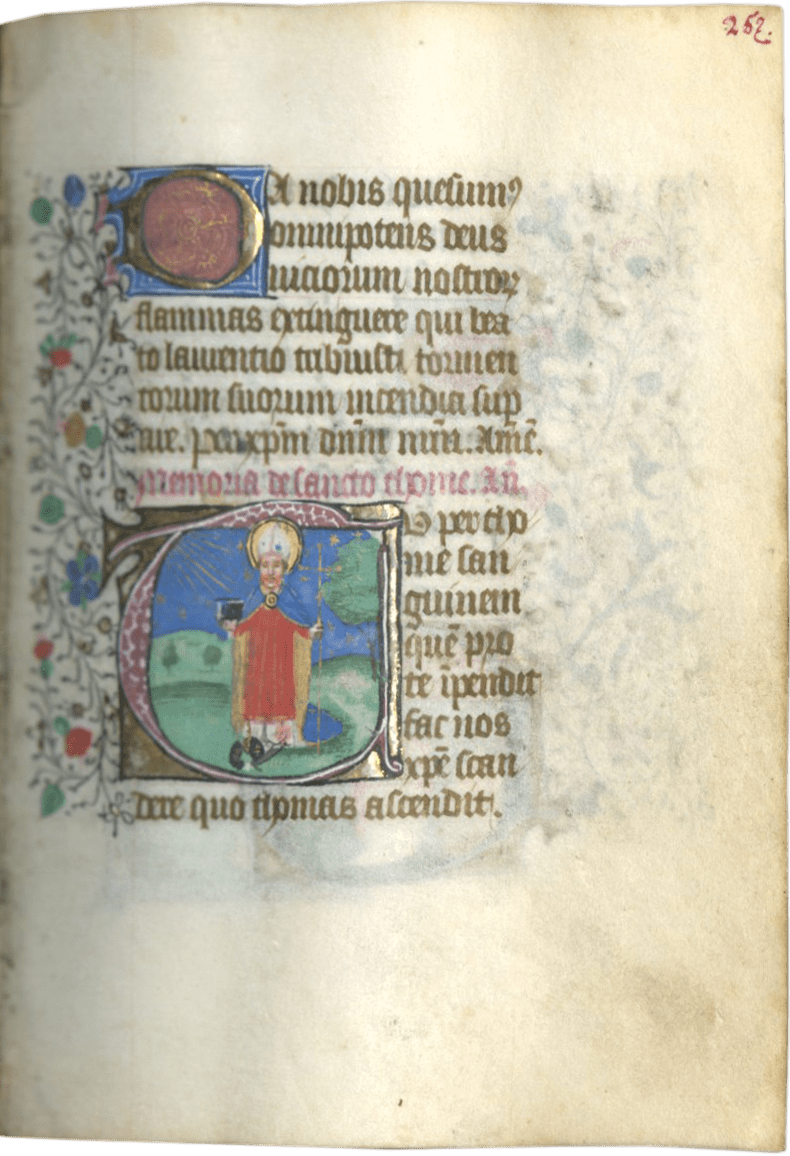 252.
DA nobis quesumꝰ
omnipotens deus
uiciorum nostroꝝ
flammas extinguere qui bea
to laurentio tribuisti tormen
torum suorum incendia sup
are. per xp̄m dnm̄ nrm̄. Amē.
Memoria de sancto thome. An̄.
Tu per tho
me san
guinem
quē pro
te īpendit
fac nos
xpē scan
dere quo thomas ascendit.